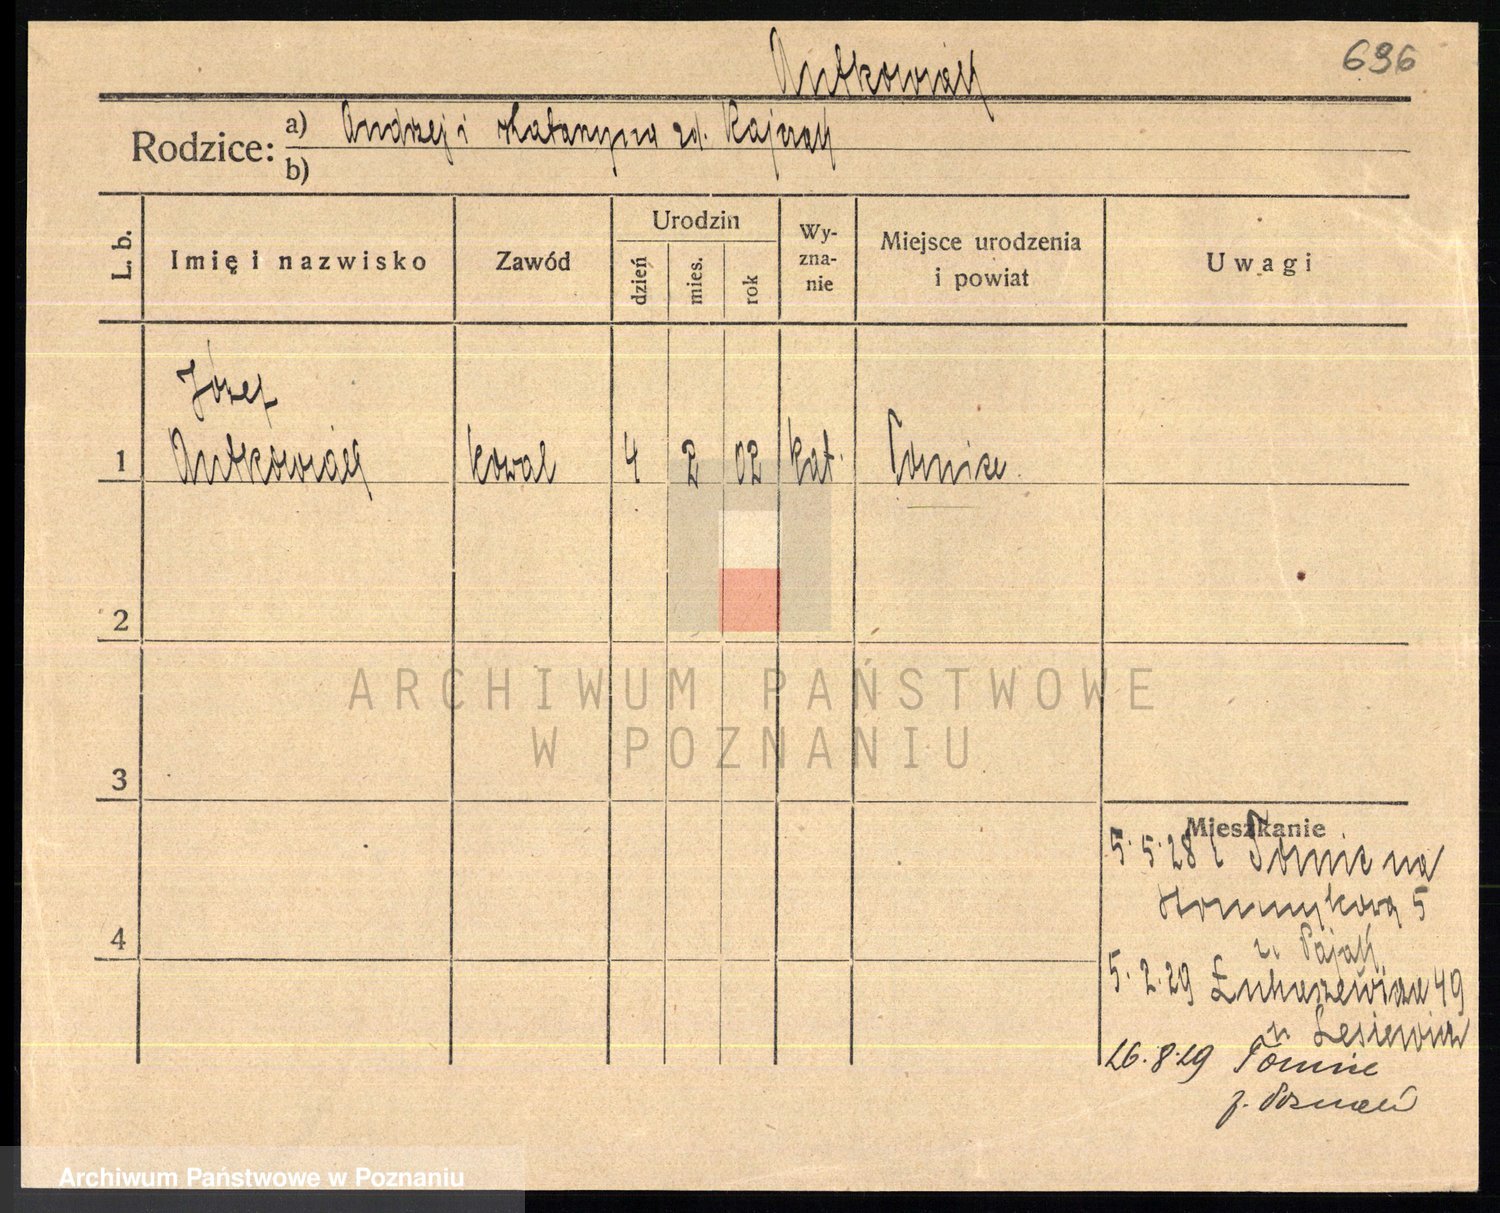 Antkowiak
696
Rodzice:
a) Andrzej i Katarzyna zd.
b)
L. b.
Imię i nazwisko
Zawód
Urodzin
dzień
mies.
rok
Wy-
zna-
nie
Miejsce urodzenia
i powiat
Uwagi
Józef
1 Antkowiak kowal 4 2 02 kat.
2
ARCHIWUM PAŃSTWOWE
W POZNANIU
3
Mieszkanie
5.5.28 na
5
4
u. Pajak
5.2.29 Łukaszewicza 49
u Lesiewicz
26.8.29
p. Poznań
Archiwum Państwowe w Poznaniu